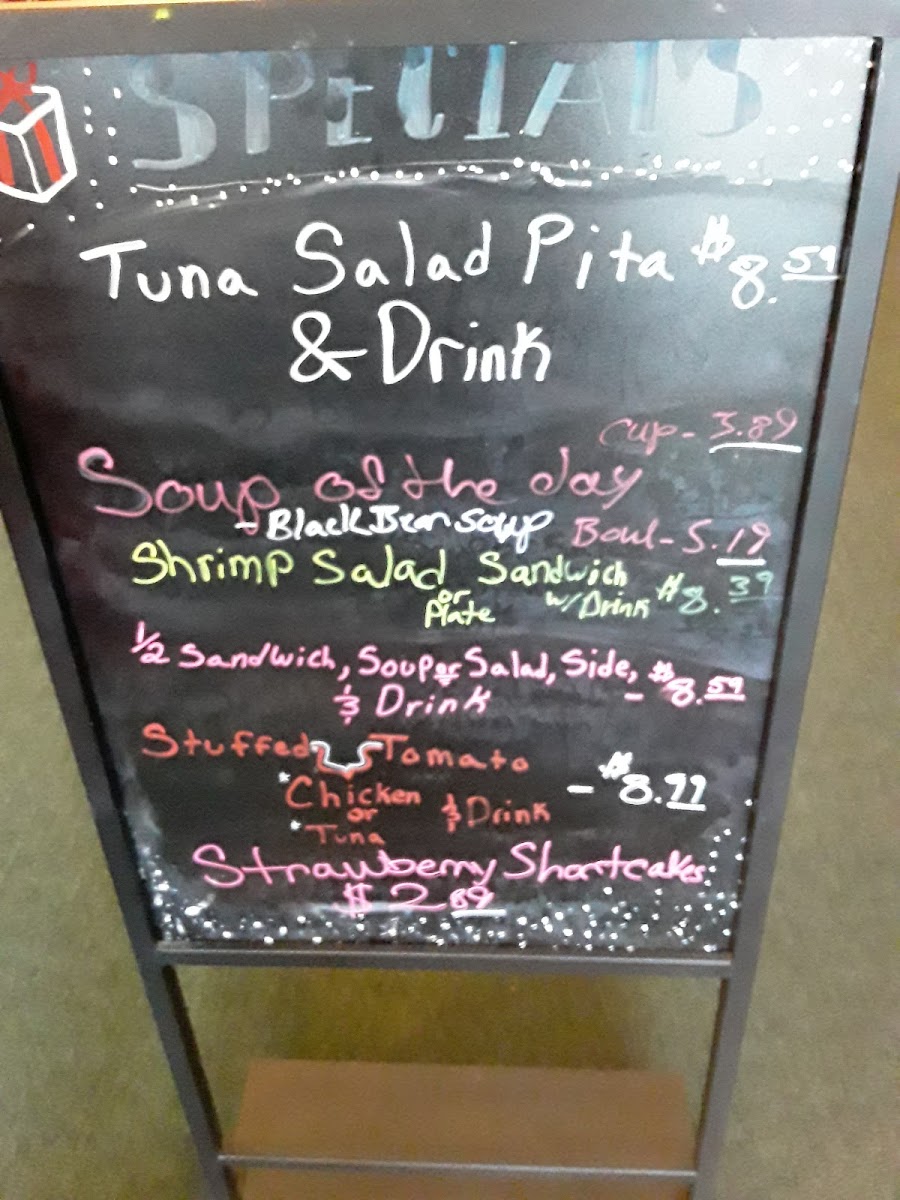 SPECIALS
Tuna Salad Pita $8.59
& Drink
Cup - 3.89
Soup of the day
- Black Bean soup Bowl - 5.19
Shrimp Salad Sandwich
or Plate w/ Drink $8.39
1/2 Sandwich, Soup or Salad, Side, - $8.59
& Drink
Stuffed Tomato
* Chicken & Drink - $8.99
or
* Tuna
Strawberry Shortcakes
$2.89